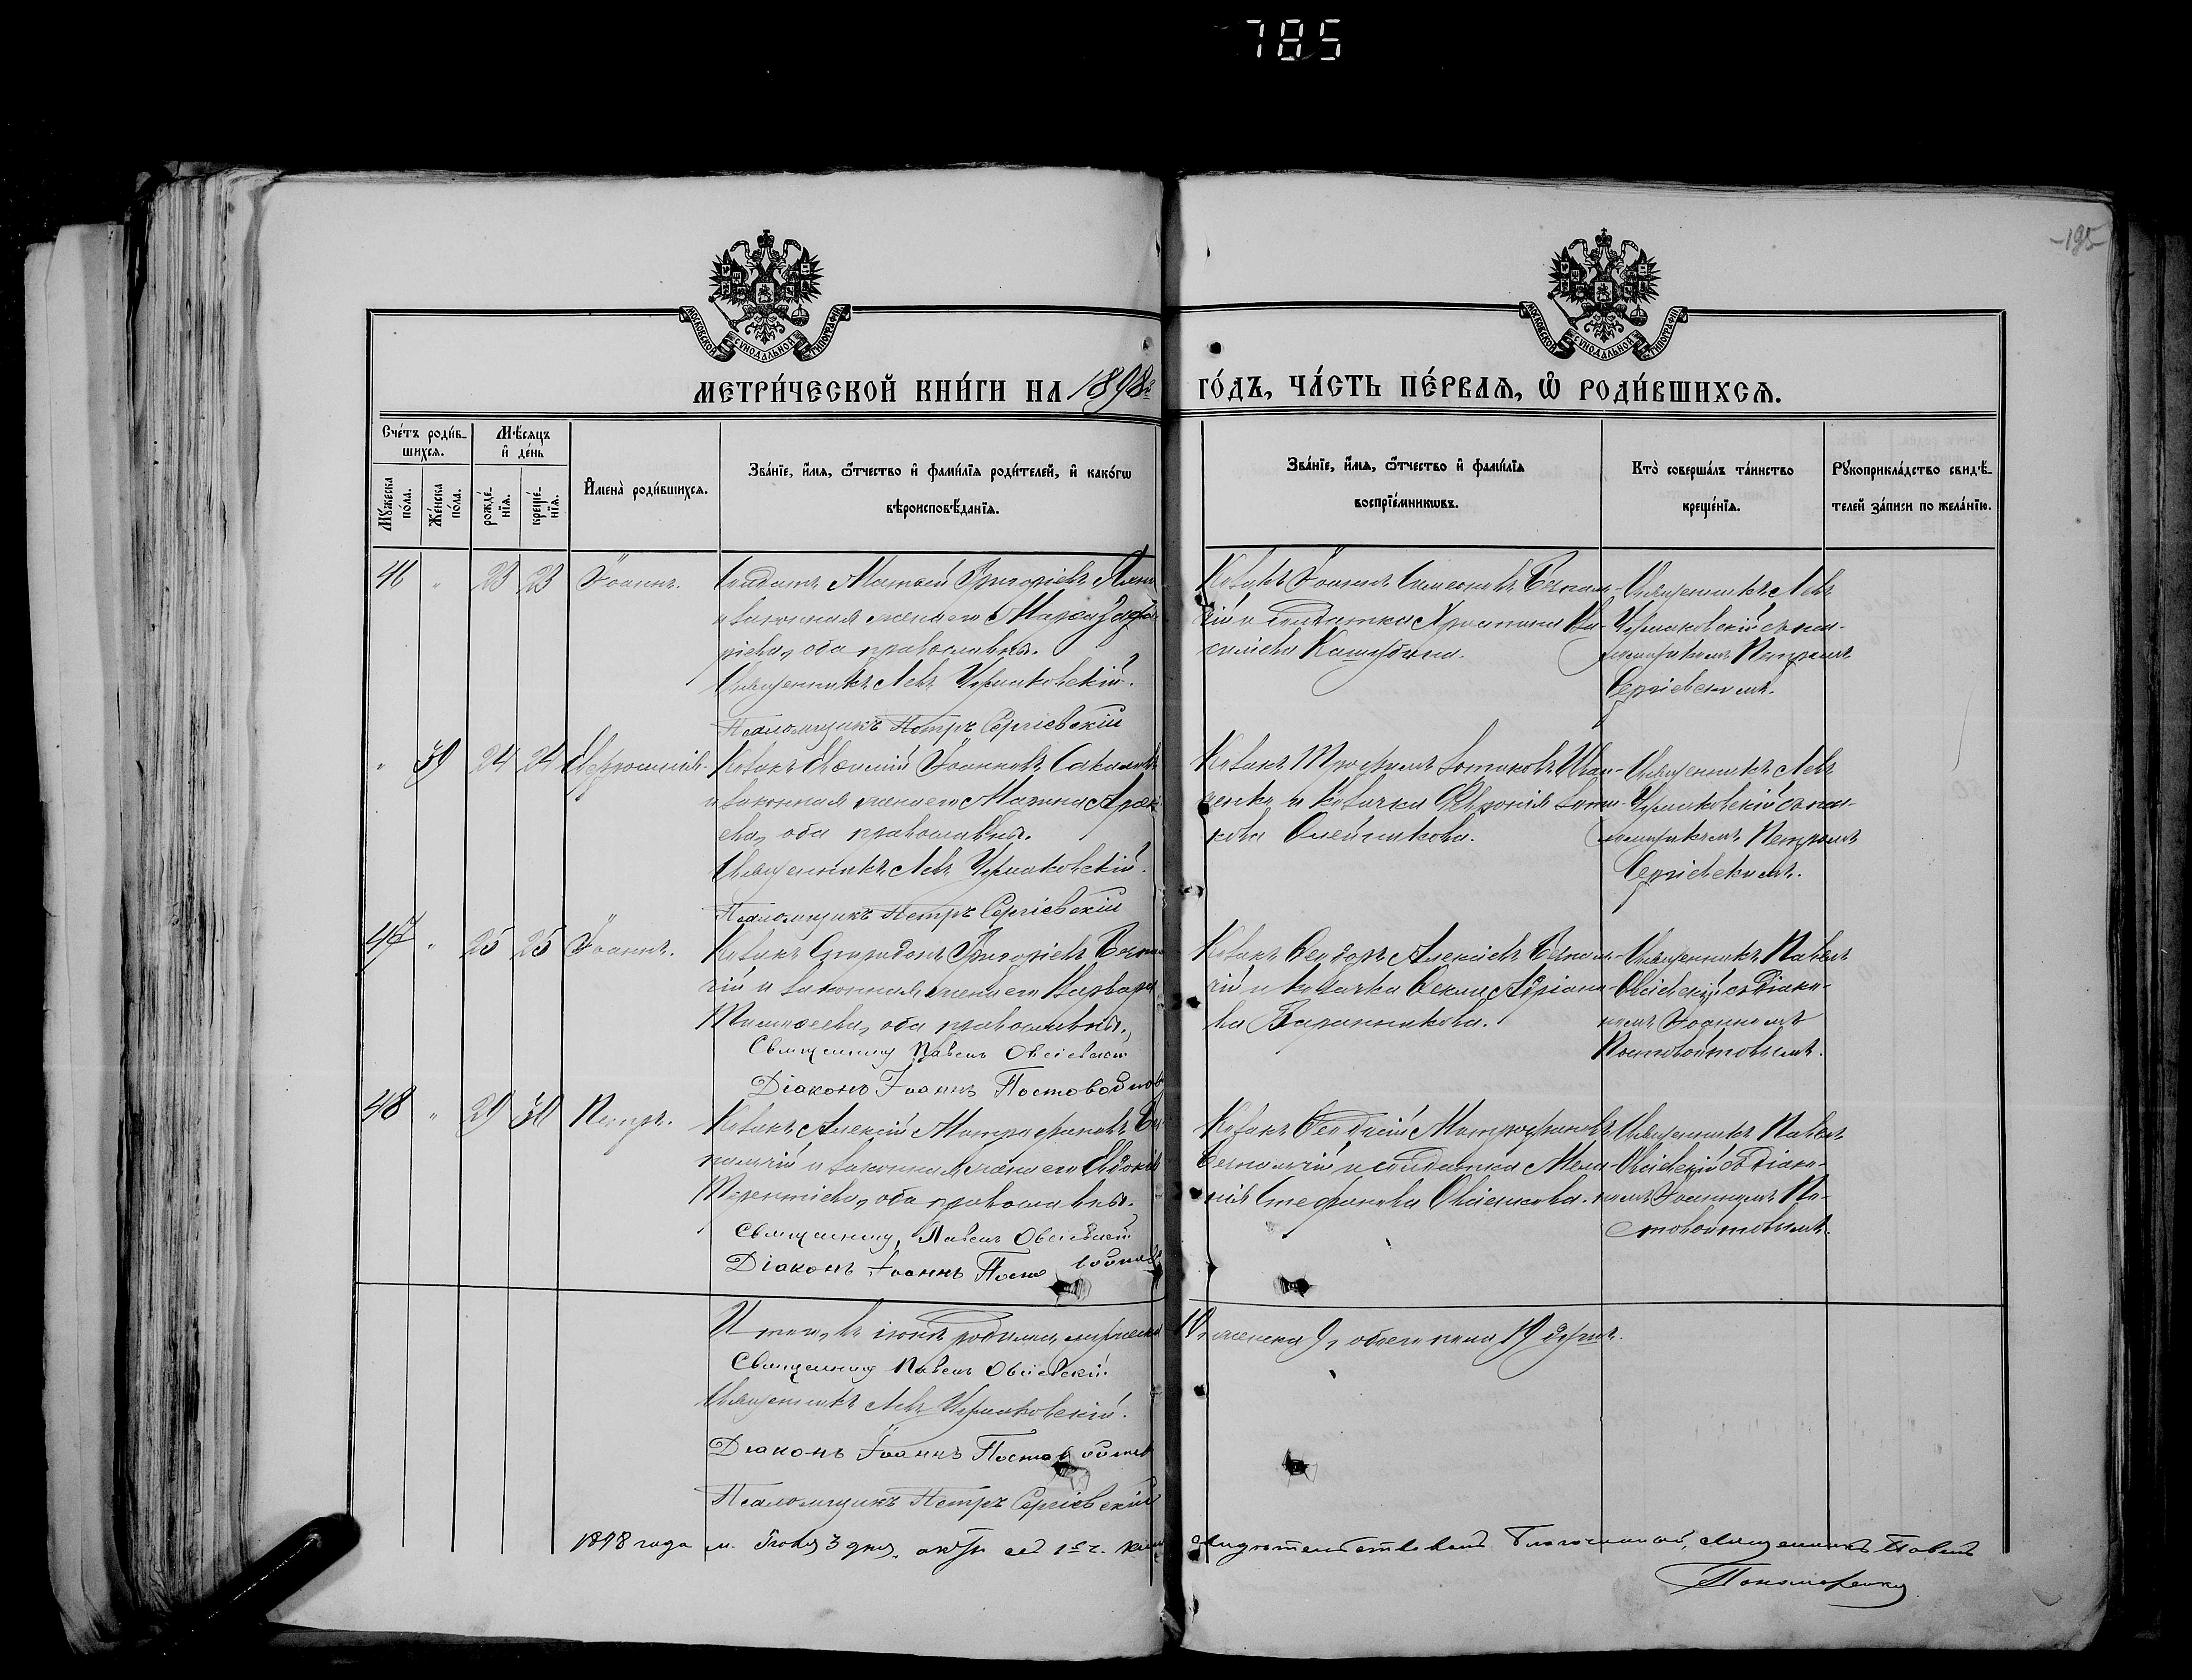 785
-195-
МОСКОВСКОЙ СѴНОДАЛЬНОЙ ТИПОГРАФІИ
МОСКОВСКОЙ СѴНОДАЛЬНОЙ ТИПОГРАФІИ
МЕТРИ́ЧЕСКОЙ КНИ́ГИ НА 1898 ГО́ДЪ, ЧА́СТЬ ПЕ́РВАѦ, Ѡ҆ РОДИ́ВШИХСѦ.
Сче́тъ роди́в-
шихсѧ.
Мꙋ́жеска по́ла.
Же́нска по́ла.
Мѣ́сѧцъ и҆ де́нь
рожде́-
нїѧ.
креще́-
нїѧ.
И҆мена̀ роди́вшихсѧ.
Зва́нїе, и҆́мѧ, ѻ҆́тчество и҆ фами́лїѧ роди́телей, и҆ како́гѡ
вѣроисповѣ́данїѧ.
Зва́нїе, и҆́мѧ, ѻ҆́тчество и҆ фами́лїѧ
воспрїе́мникѡвъ.
Кто̀ соверша́лъ та́инство
креще́нїѧ.
Рꙋкоприкла́дство свидѣ́-
телей за́писи по жела́нїю.
46 " 23 23 Іоаннъ.
Солдатъ Матвей Григорієвъ
и законная жена его Марѳа
оба православны.
Священникъ Левъ Чермаковскій.
Псаломщикъ Петръ Сергіевскій
Козакъ Іоаннъ Симеоновъ
и солдатка Христина Ва-
силіева
Священникъ Левъ
Чермаковскій съ пса-
ломщикомъ Петромъ
Сергіевскимъ.
" 39 24 24 Евфросинія.
Козакъ Евѳимій Іоанновъ
и законная жена его Марина
оба православны.
Священникъ Левъ Чермаковскій.
Псаломщикъ Петръ Сергіевскій
Козакъ Трофимъ
и козачка Февронія
Олейникова.
Священникъ Левъ
Чермаковскій съ пса-
ломщикомъ Петромъ
Сергіевскимъ.
47 " 25 25 Іоаннъ.
Козакъ Спиридонъ Григоріевъ
и законная жена его Варвара
Тимоѳеева, оба православны.
Священникъ Павелъ Овсіевскій
Діаконъ Іоаннъ Постовойтовъ
Козакъ Ѳеодоръ Алексіевъ
и козачка Ѳекла Адріано-
ва Баранникова.
Священникъ Павелъ
Овсіевскій съ Діако-
номъ Іоанномъ
Постовойтовымъ.
48 " 29 30 Петръ.
Козакъ Алексій Митрофановъ
и законная жена его Евдокія
Терентіева, оба православны.
Священникъ Павелъ Овсіевскій
Діаконъ Іоаннъ Постовойтовъ
Козакъ Ѳеодосій Митрофановъ
и солдатка Мела-
нія Стефанова Овсіенкова.
Священникъ Павелъ
Овсіевскій съ Діако-
номъ Іоанномъ По-
стовойтовымъ.
Итого, въ іюнѣ родилось мужеска 10 женска 9, обоего пола 19 душъ.
Священникъ Павелъ Овсіевскій
Священникъ Левъ Чермаковскій.
Діаконъ Іоаннъ Постовойтовъ
Псаломщикъ Петръ Сергіевскій
1898 года м. 3 дня свидѣтельствовалъ Благочинный, священникъ Павелъ
Пономаренко